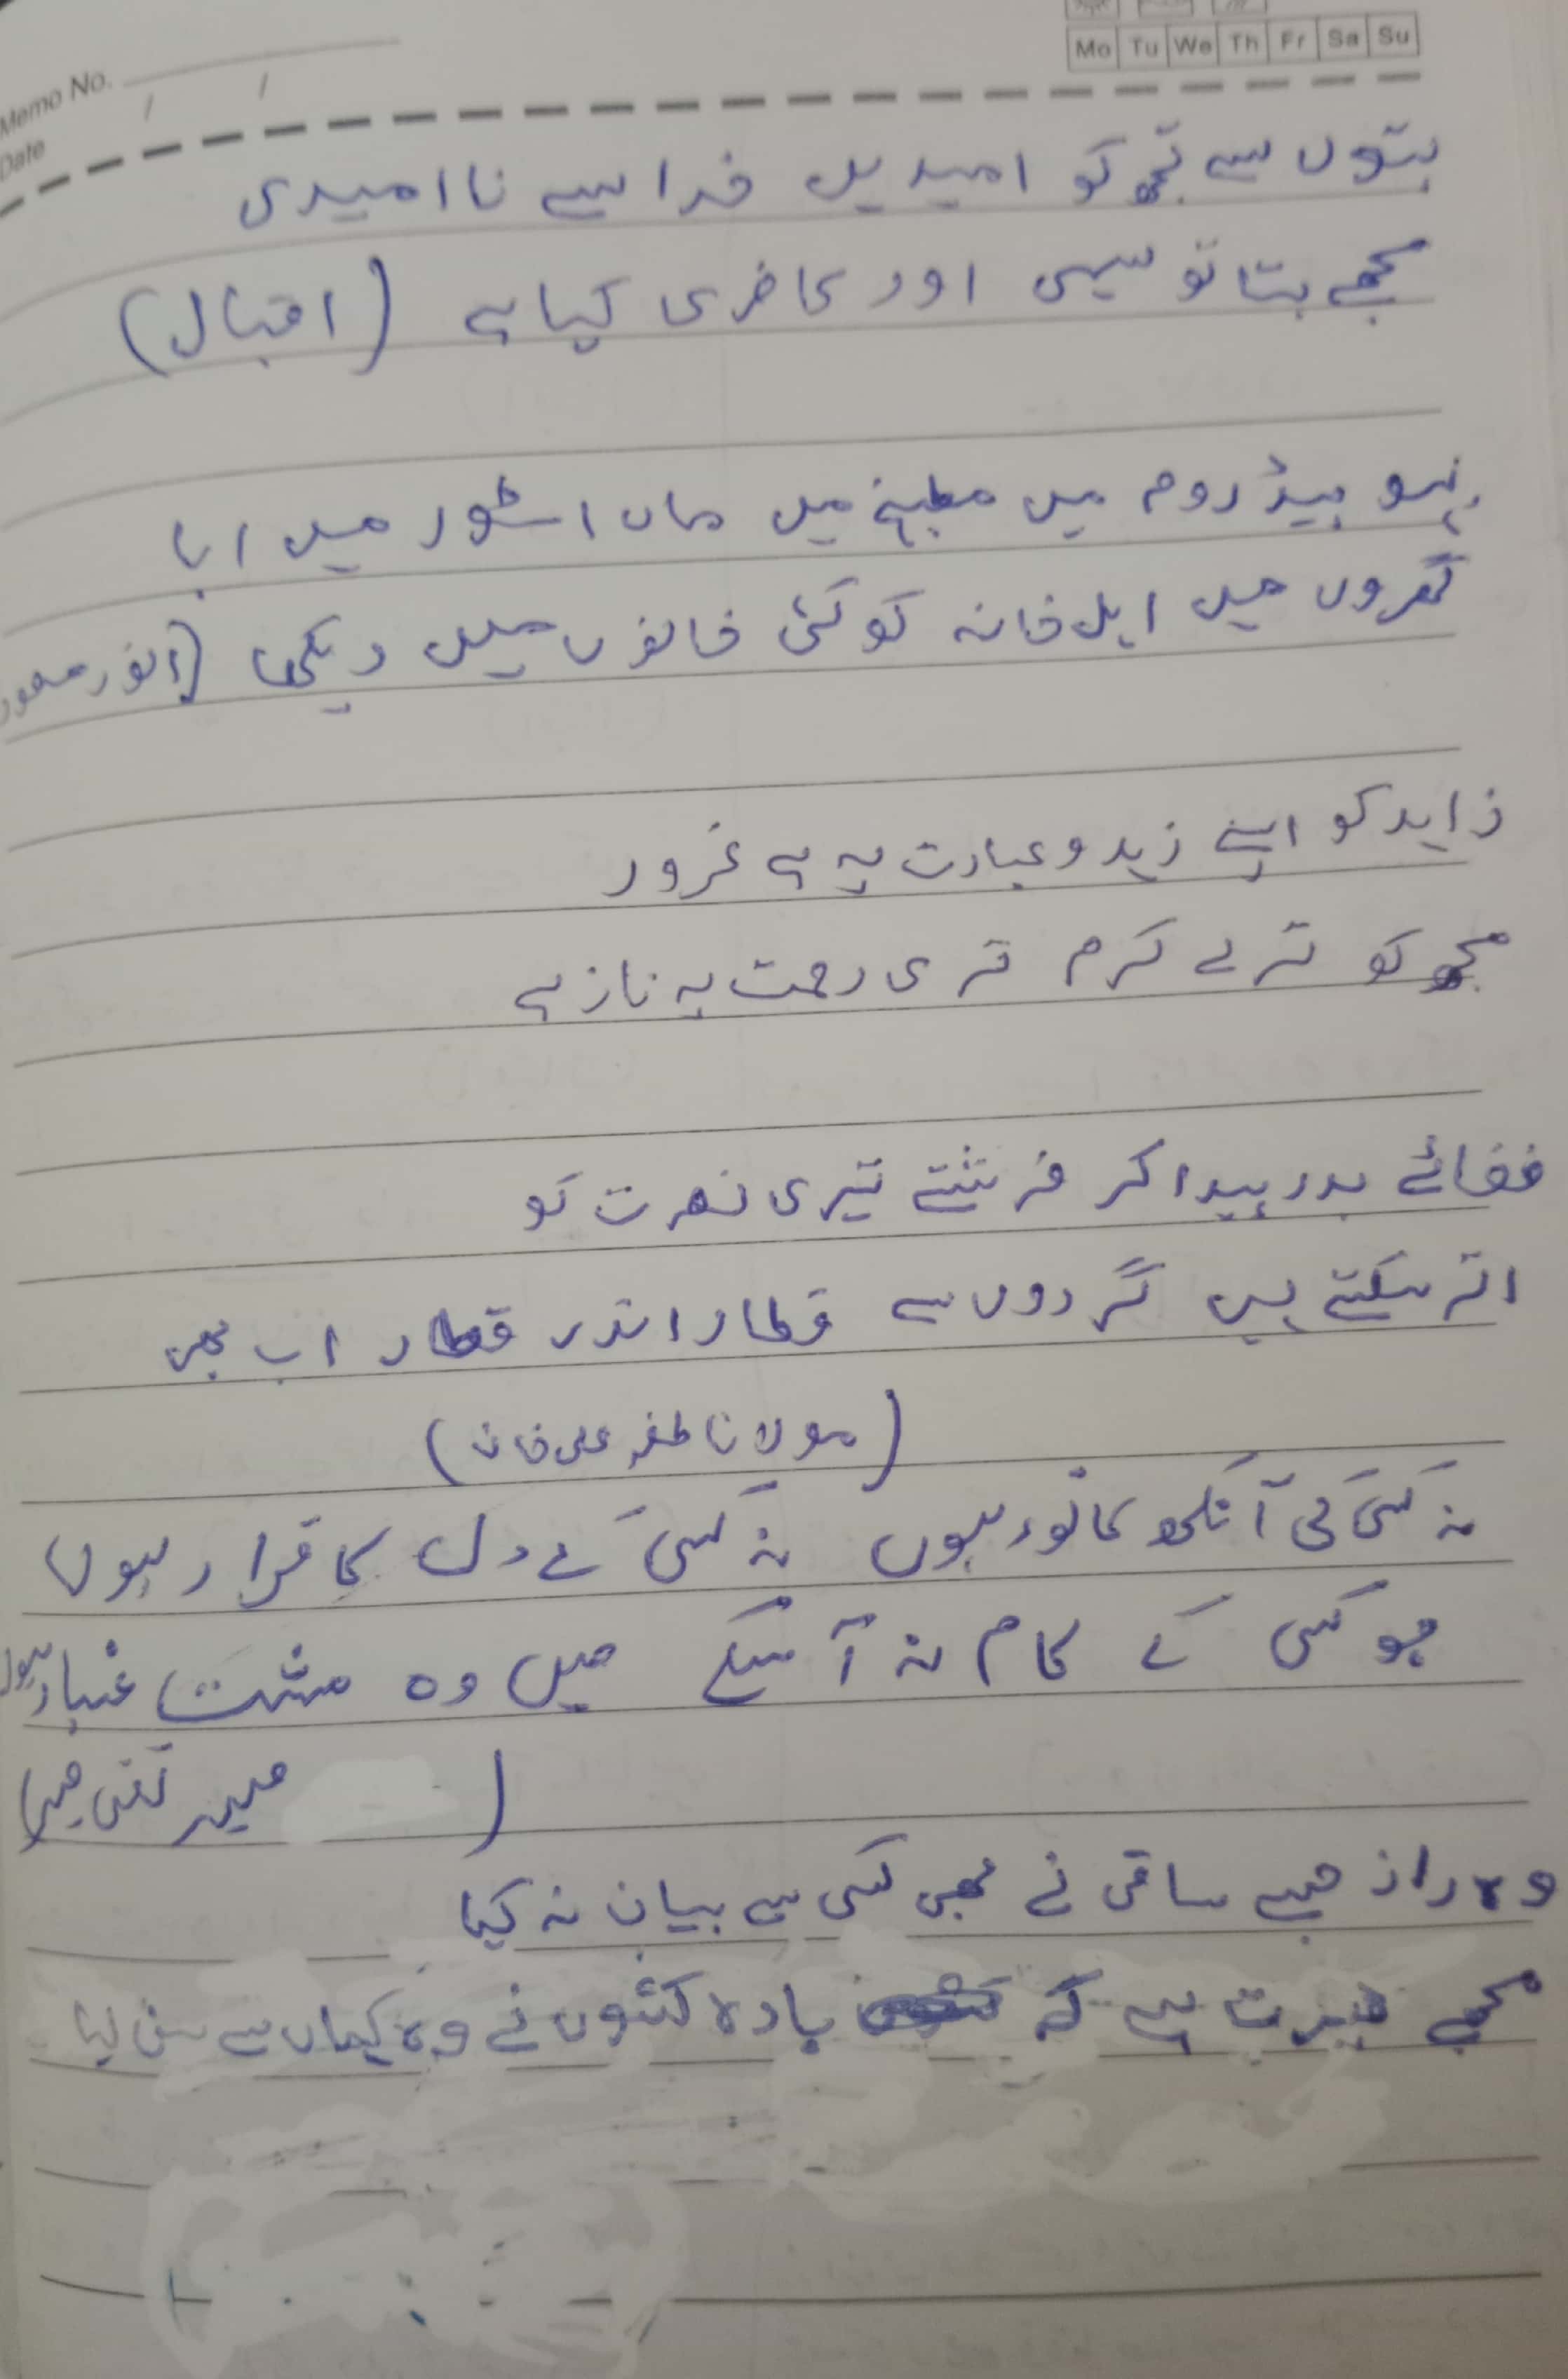 Memo No.
Date / /
Mo Tu We Th Fr Sa Su
بتوں سے تجھ کو امیدیں خدا سے نا امیدی
مجھے بتا تو سہی اور کافری کیا ہے (اقبال)
بہو بیڈ روم میں مطبخ میں ماں اسٹور میں ابا
گھروں میں اہل خانہ کو کئی خانوں میں دیکھا (انور مسعود
زاہد کو اپنے زہد و عبادت پہ ہے غرور
مجھ کو ترے کرم تری رحمت پہ ناز ہے
فضائے بدر پیدا کر فرشتے تیری نصرت کو
اتر سکتے ہیں گردوں سے قطار اندر قطار اب بھی
(مولانا ظفر علی خان)
نہ کسی کی آنکھ کا نور ہوں نہ کسی کے دل کا قرار ہوں
جو کسی کے کام نہ آ سکے میں وہ مشت غبار ہوں
(میر تقی میر)
وہ راز جسے ساقی نے بھی کسی سے بیان نہ کیا
مجھے حیرت ہے کہ بادہ کشوں نے وہ کہاں سے سن لیا